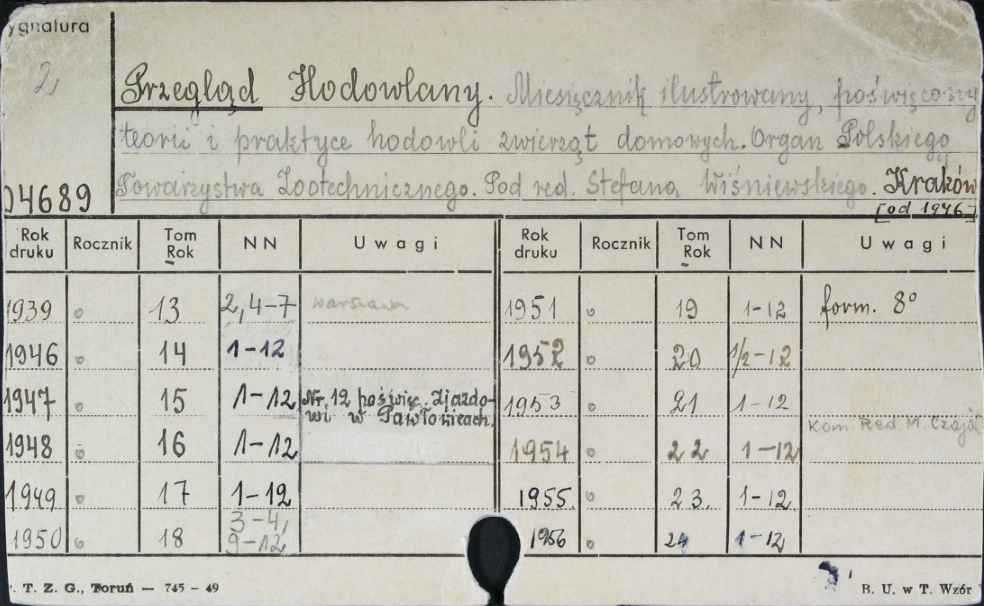 ygnatura
2
Przegląd Hodowlany. Miesięcznik ilustrowany, poświęcony
teorii i praktyce hodowli zwierząt domowych. Organ Polskiego
Towarzystwa Zootechnicznego. Pod red. Stefana Wiśniewskiego. Kraków
04689 [od 1946]
Rok druku Rocznik Tom Rok NN Uwagi Rok druku Rocznik Tom Rok NN Uwagi
1939 13 2,4-7 Warszawa 1951 19 1-12 form. 8°
1946 14 1-12 1952 20 1/2-12
1947 15 1-12 Nr. 12 poświęc. Zjazdo-
wi w Pawłowicach. 1953 21 1-12
Kom. Red. M. Czaja
1948 16 1-12 1954 22 1-12
1949 17 1-12 1955. 23. 1-12
1950 18 3-4, 9-12 1956 24 1-12
. T. Z. G., Toruń — 745 - 49 B. U. w T. Wzór